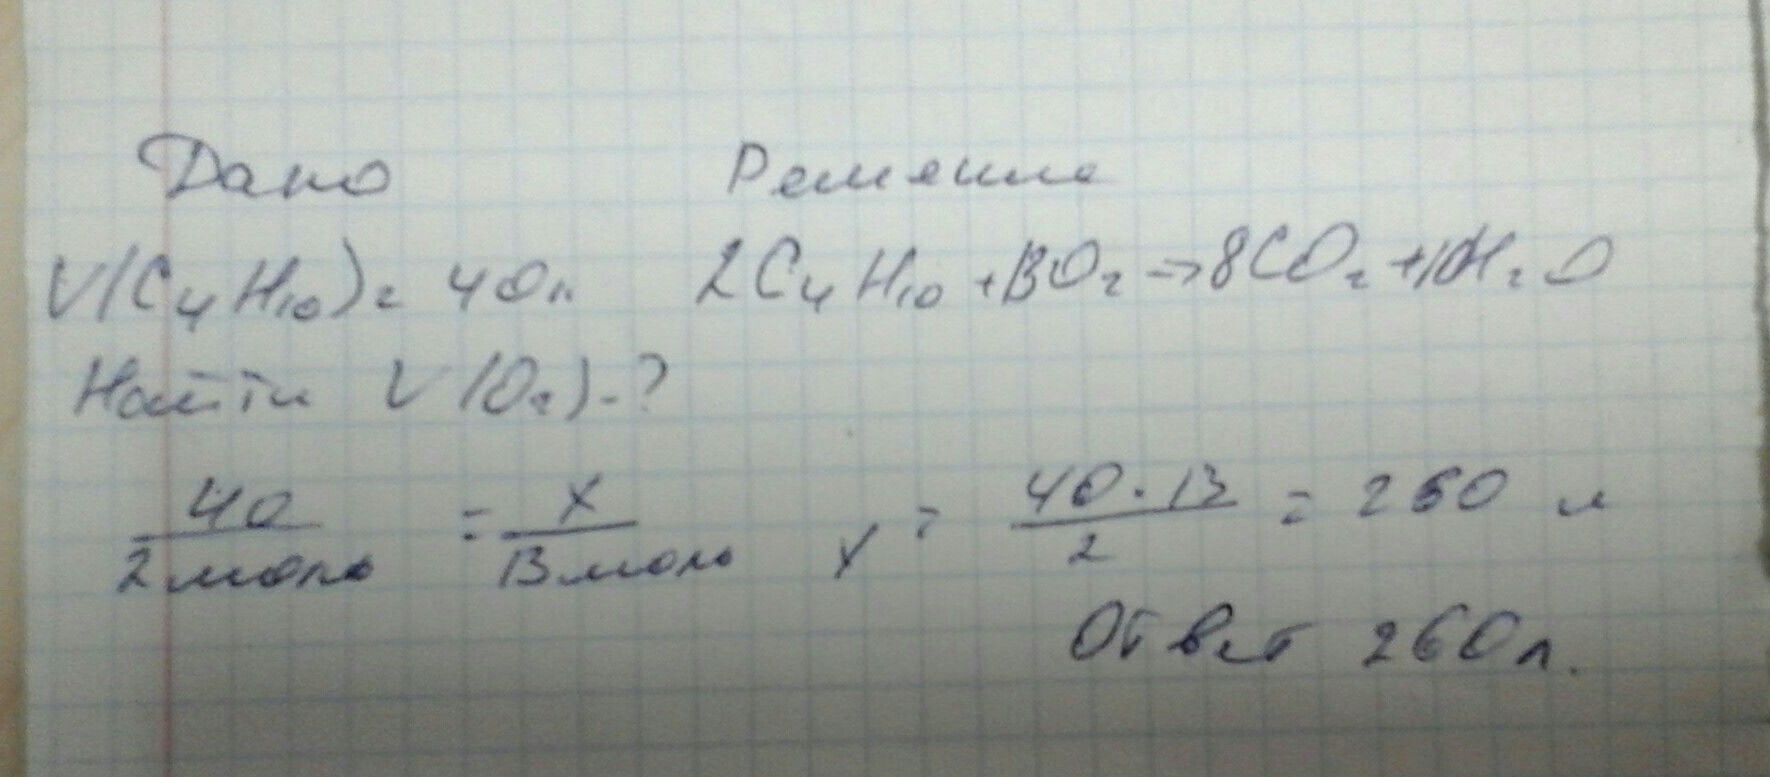 Дано Решение
V(C₄H₁₀)= 40л 2C₄H₁₀+13O₂→8CO₂+10H₂O
Найти V(O₂)-?
40/2моль = x/13моль x = 40·13/2 = 260 л
Ответ 260л.